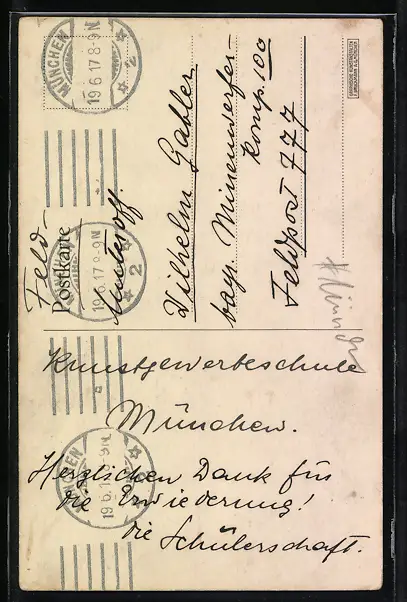 MÜNCHEN
19.6.17.8-9N
2
Feld-
Postkarte
19.6.17.8-9N
2
Wilhelm Gahler
bayr. Minenwerfer-
komp. 100
Feldpost 777
Kunstgewerbeschule
München.
Herzlichen Dank für
die Erwiederung!
die Schülerschaft.